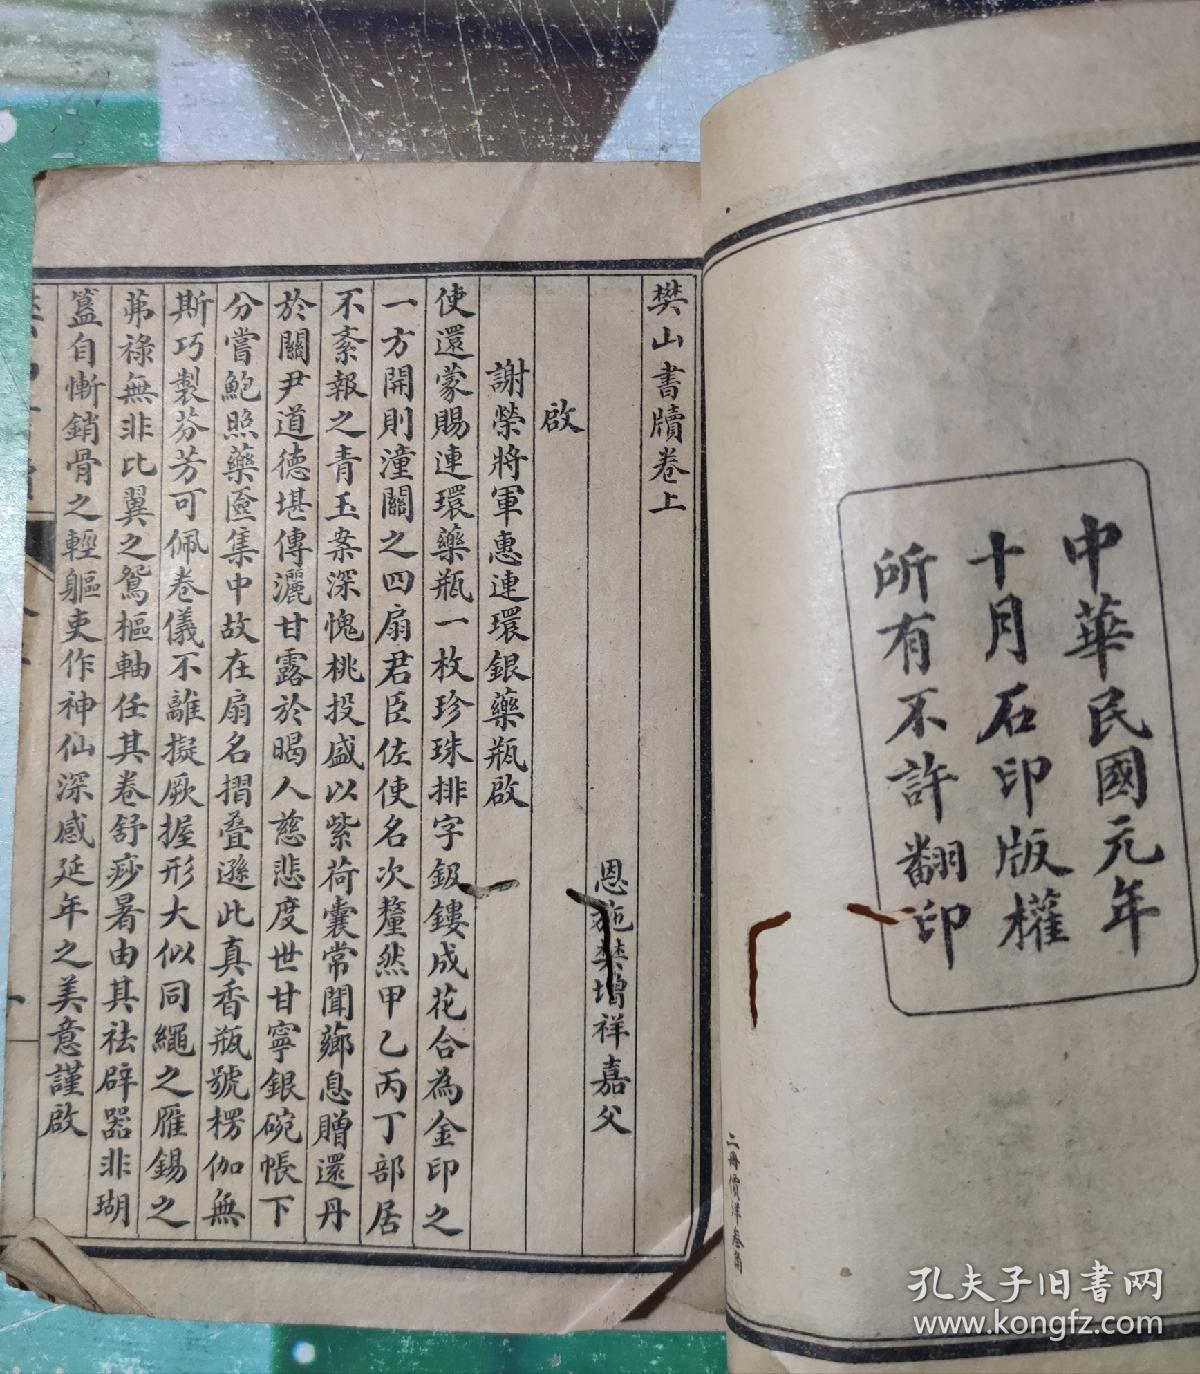 中華民國元年
十月石印版權
所有不許翻印
二冊價洋叁角
樊山書牘卷上
恩施樊增祥嘉父
啟
謝榮將軍惠連環銀藥瓶啟
使還蒙賜連環藥瓶一枚珍珠排字鈒鏤成花合為金印之
一方開則潼關之四扇君臣佐使名次釐然甲乙丙丁部居
不紊報之青玉案深愧桃投盛以紫荷囊常聞薌息贈還丹
於關尹道德堪傳灑甘露於暍人慈悲度世甘寧銀碗帳下
分嘗鮑照藥匳集中故在扇名摺叠遜此真香瓶號楞伽無
斯巧製芬芳可佩卷儀不離擬厥握形大似同繩之雁錫之
茀祿無非比翼之鴛樞軸任其卷舒痧暑由其祛辟器非瑚
簋自慚銷骨之輕軀吏作神仙深感延年之美意謹啟
孔夫子旧書网
www.kongfz.com